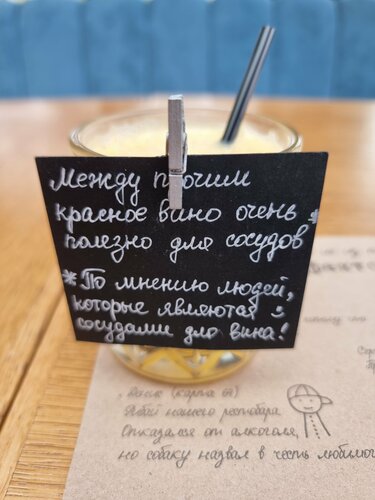 Между прочим
красное вино очень *
полезно для сосудов
* По мнению людей,
которые являются
сосудами для вина!
Ванк (карта от)
Отказался от алкоголя,
но собаку назвал в честь любимог